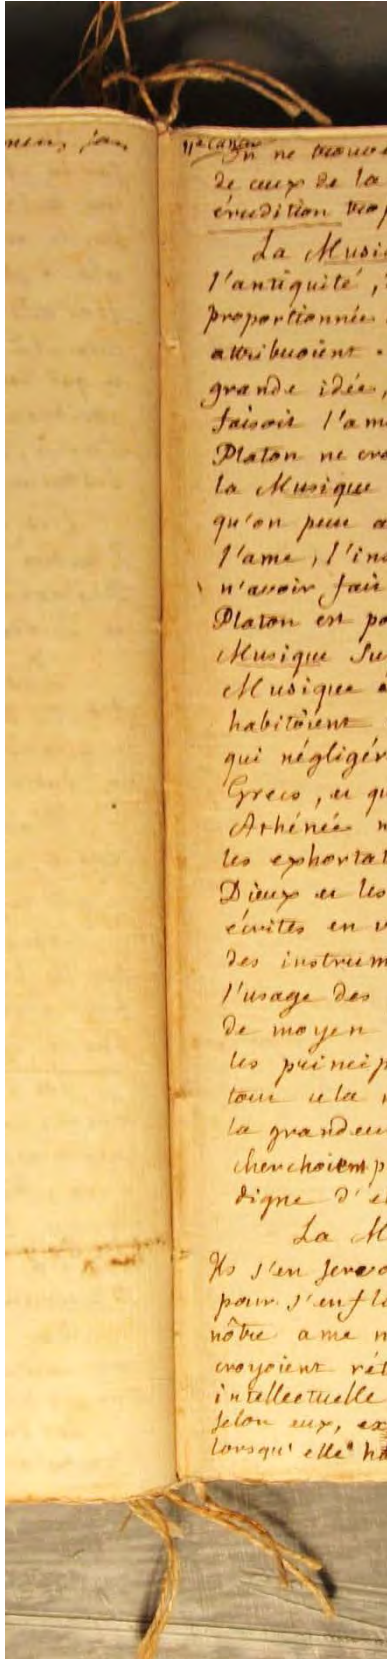 11e cahier
On ne trouve
de ceux de la
érudition trop
La Musiq
l'antiquité,
proportionnée
attribuoient
grande idée,
faisoit l'am
Platon ne cro
la Musique
qu'on peut a
l'ame, l'ind
n'avoir fait
Platon est po
Musique Su
Musique e
habitoient
qui négligér
Grecs, et qu
Athénée n
les exhortat
Dieux et les
écrites en v
des instrum
l'usage des
de moyen
les princip
tout cela n
la grandeu
cherchoient p
digne d'e
La M
Ils s'en servo
pour s'enfl
nôtre ame n
croyoient rét
intellectuelle
selon eux, ex
lorsqu'elle ha